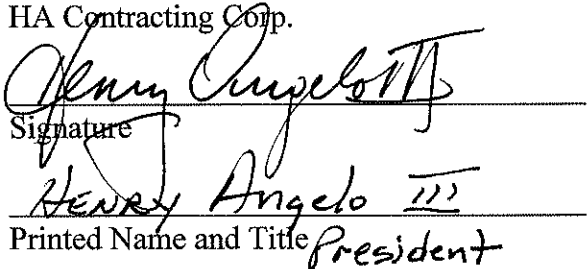 HA Contracting Corp.
Henry Angelo III
Signature
HENRY Angelo III
Printed Name and Title President